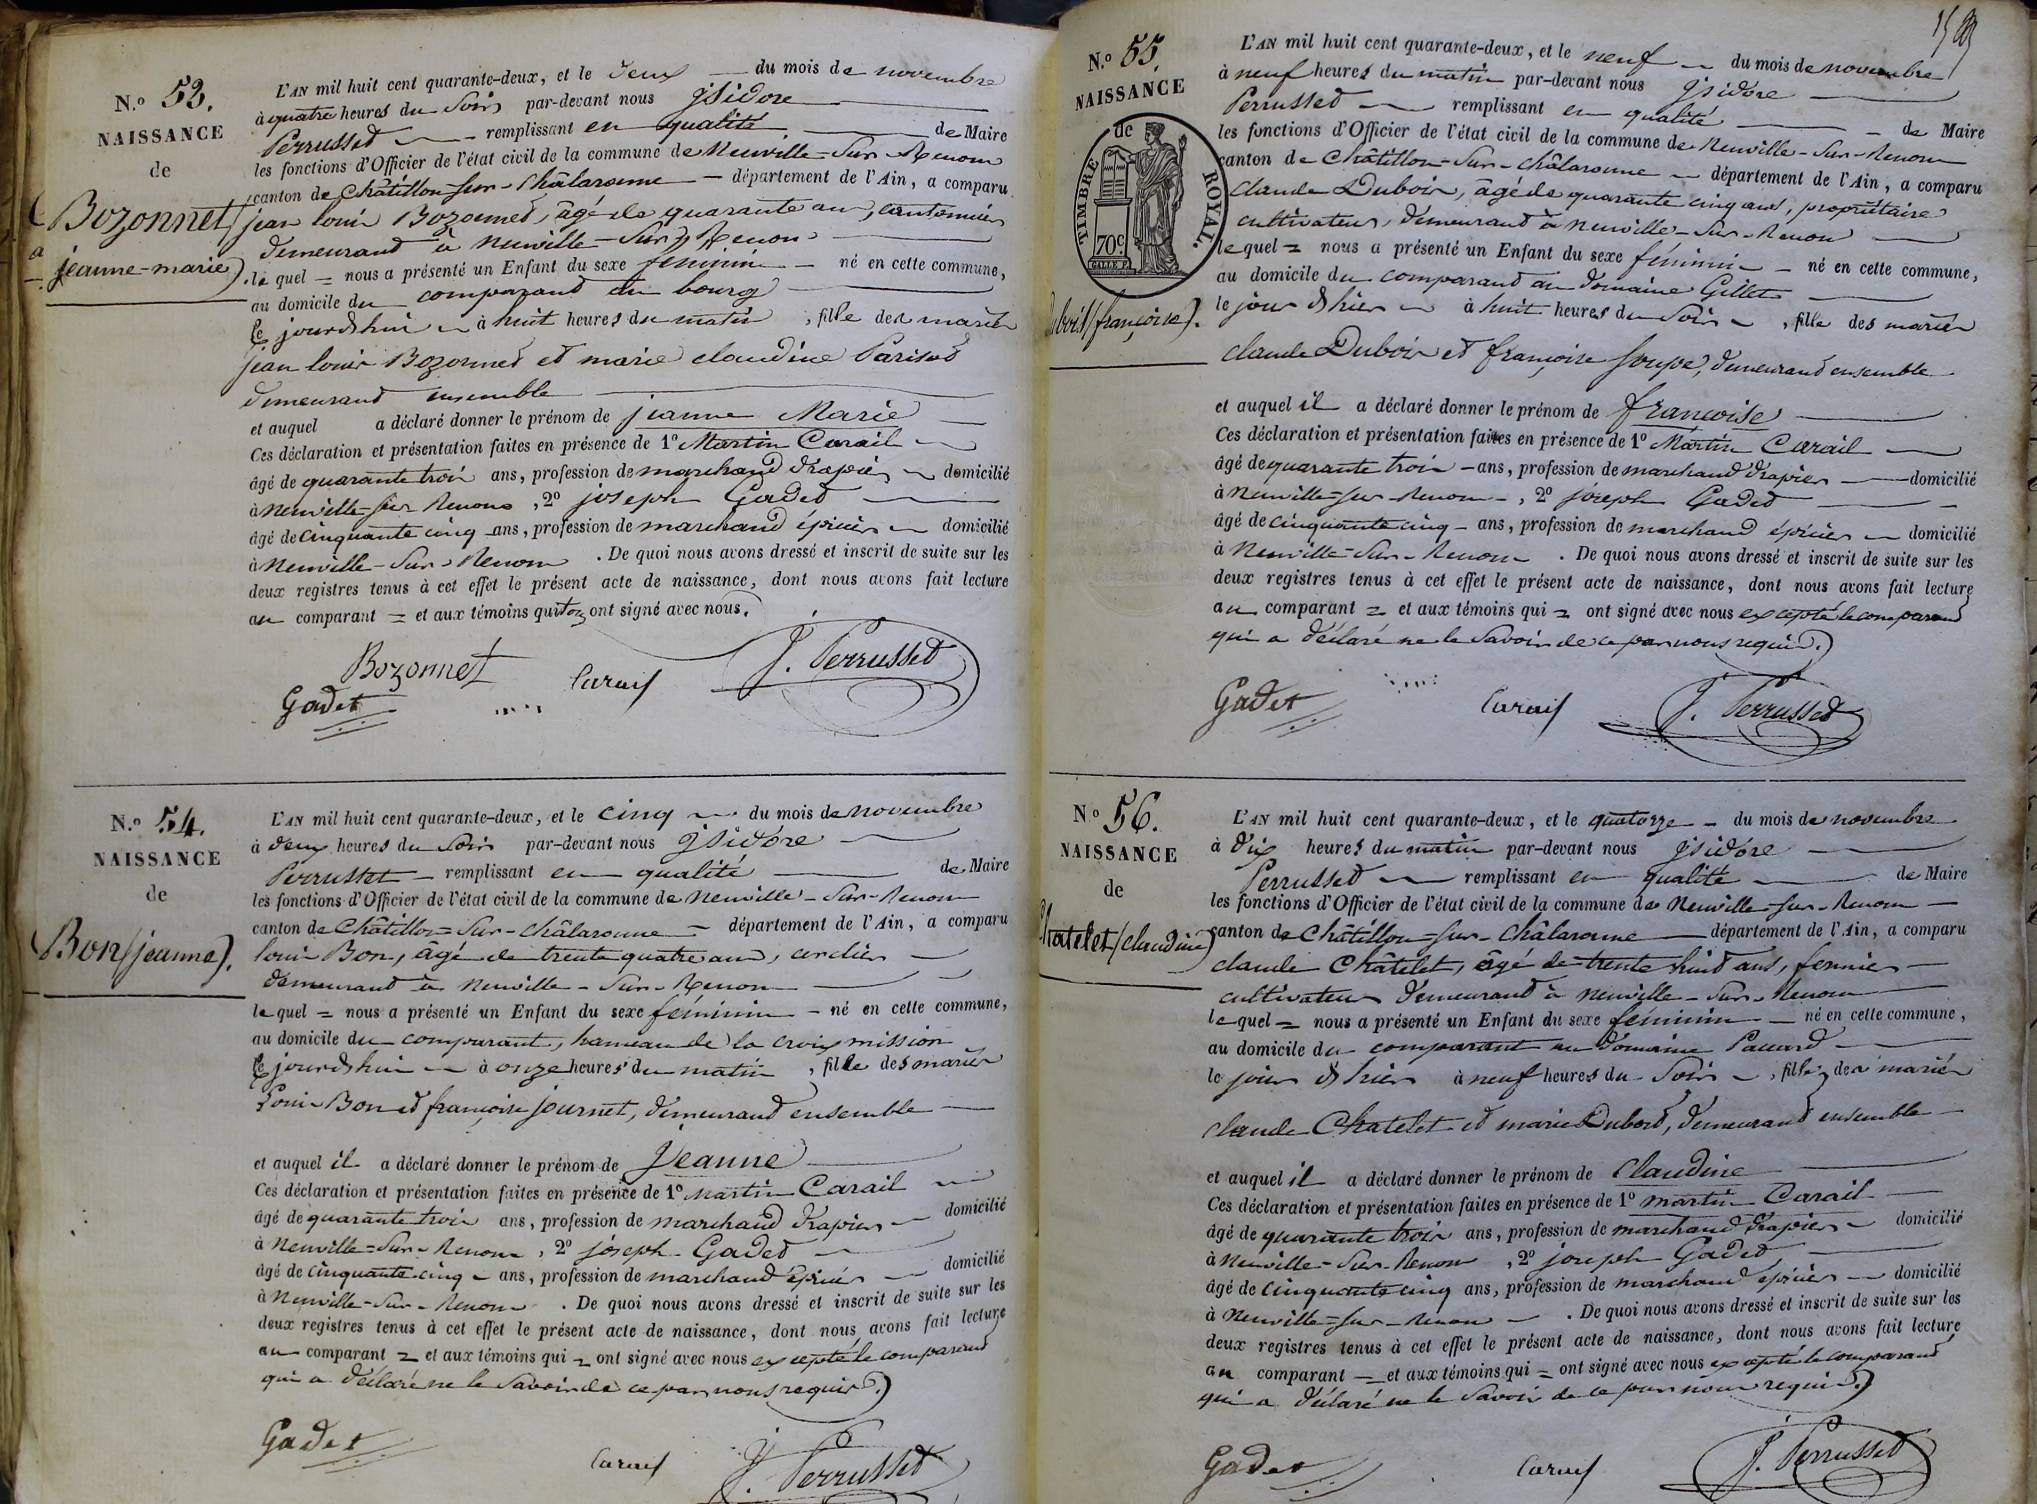 N.º 53.
NAISSANCE
de
Bozonnet
(jeanne-marie).
L'AN mil huit cent quarante-deux, et le deux du mois de novembre
à quatre heures du soir par-devant nous jsidore
Perrusset remplissant en qualité de Maire
les fonctions d'Officier de l'état civil de la commune de Neuville-Sur-Renom
canton de Châtillon-sur-Châlaronne département de l'Ain, a comparu
jean louis Bozonnet, âgé de quarante ans, cantonnier
demeurant à Neuville-Sur-Renon
lequel = nous a présenté un Enfant du sexe féminin né en cette commune,
au domicile du comparant au bourg
le jourd'hui à huit heures du matin, fille des mariés
jean louis Bozonnet et marie claudine Pariset
demeurant ensemble
et auquel a déclaré donner le prénom de jeanne Marie
Ces déclaration et présentation faites en présence de 1º Martin Carail
âgé de quarante trois ans, profession de marchand drapier domicilié
à Neuville-sur Renons, 2º joseph Gadet
âgé de cinquante cinq ans, profession de marchand épicier domicilié
à Neuville-Sur-Renom. De quoi nous avons dressé et inscrit de suite sur les
deux registres tenus à cet effet le présent acte de naissance, dont nous avons fait lecture
au comparant = et aux témoins qui ont signé avec nous.
Bozonnet
Gadet Carail J. Perrusset
N.º 54.
NAISSANCE
de
Bon (jeanne).
L'AN mil huit cent quarante-deux, et le cinq du mois de novembre
à deux heures du soir par-devant nous jsidore
Perrusset remplissant en qualité de Maire
les fonctions d'Officier de l'état civil de la commune de Neuville-Sur-Renom
canton de Châtillon-Sur-Châlaronne département de l'Ain, a comparu
louis Bon, âgé de trente quatre ans, cerclier
demeurant à Neuville-Sur-Renom
lequel = nous a présenté un Enfant du sexe féminin - né en cette commune,
au domicile du comparant, hameau de la croix mission
le jourd'hui à onze heures du matin, fille des mariés
Louis Bon et françoise journet, demeurant ensemble
et auquel il a déclaré donner le prénom de Jeanne
Ces déclaration et présentation faites en présence de 1º Martin Carail
âgé de quarante trois ans, profession de marchand drapier domicilié
à Neuville-Sur-Renom, 2º joseph Gadet
âgé de cinquante cinq ans, profession de marchand épicier domicilié
à Neuville-Sur-Renom. De quoi nous avons dressé et inscrit de suite sur les
deux registres tenus à cet effet le présent acte de naissance, dont nous avons fait lecture
au comparant = et aux témoins qui = ont signé avec nous excepté le comparant
qui a déclaré ne le savoir de ce par nous requis.)
Gadet Carail J. Perrusset
N.º 55.
NAISSANCE
de
TIMBRE ROYAL.
70c
Dubois (françoise).
L'AN mil huit cent quarante-deux, et le neuf du mois de novembre
à neuf heures du matin par-devant nous jsidore
Perrusset remplissant en qualité de Maire
les fonctions d'Officier de l'état civil de la commune de Neuville-Sur-Renom
canton de Châtillon-Sur-Châlaronne département de l'Ain, a comparu
claude Dubois, âgé de quarante cinq ans, propriétaire
cultivateur demeurant à Neuville-Sur-Renom
lequel = nous a présenté un Enfant du sexe féminin né en cette commune,
au domicile du comparant au domaine Gillet
le jour d'hier à huit heures du soir, fille des mariés
claude Dubois et françoise Soupe, demeurant ensemble
et auquel il a déclaré donner le prénom de françoise
Ces déclaration et présentation faites en présence de 1º Martin Carail
âgé de quarante trois ans, profession de marchand drapier domicilié
à Neuville-sur-Renom, 2º joseph Gadet
âgé de cinquante cinq ans, profession de marchand épicier domicilié
à Neuville-Sur-Renom. De quoi nous avons dressé et inscrit de suite sur les
deux registres tenus à cet effet le présent acte de naissance, dont nous avons fait lecture
au comparant = et aux témoins qui = ont signé avec nous excepté le comparant
qui a déclaré ne le savoir de ce par nous requis.)
Gadet Carail J. Perrusset
N.º 56.
NAISSANCE
de
Chatelet (claudine)
L'AN mil huit cent quarante-deux, et le quatorze du mois de novembre
à dix heures du matin par-devant nous jsidore
Perrusset remplissant en qualité de Maire
les fonctions d'Officier de l'état civil de la commune de Neuville-sur-Renom
canton de Châtillon-sur-Châlaronne département de l'Ain, a comparu
claude Châtelet, âgé de trente huit ans, fermier
cultivateur demeurant à Neuville-Sur-Renom
lequel = nous a présenté un Enfant du sexe féminin né en cette commune,
au domicile du comparant au domaine Paccard
le jour d'hier à neuf heures du soir, fille des mariés
claude Chatelet et marie Dubost, demeurant ensemble
et auquel il a déclaré donner le prénom de claudine
Ces déclaration et présentation faites en présence de 1º martin Carail
âgé de quarante trois ans, profession de marchand drapier domicilié
à Neuville-Sur-Renom, 2º joseph Gadet
âgé de cinquante cinq ans, profession de marchand épicier domicilié
à Neuville-sur-Renom. De quoi nous avons dressé et inscrit de suite sur les
deux registres tenus à cet effet le présent acte de naissance, dont nous avons fait lecture
au comparant = et aux témoins qui = ont signé avec nous excepté le comparant
qui a déclaré ne le savoir de ce par nous requis.)
Gadet Carail J. Perrusset